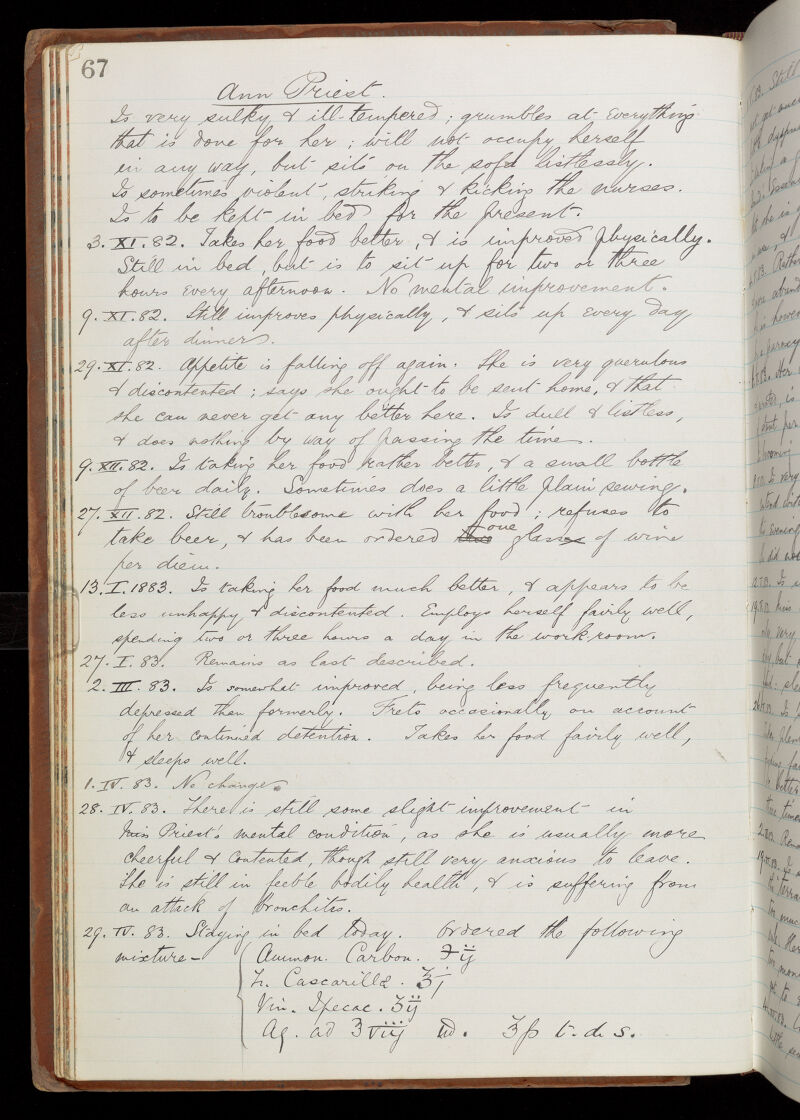 67
Ann Priest.
Is very sulky & ill-tempered; grumbles at everything
that is done for her; will not occupy herself
in any way, but sits on the sofa listlessly.
Is sometimes violent, striking & kicking the nurses.
Is to be kept in bed for the present.
3. XI. 82. Takes her food better, & is improved physically.
Still in bed, but is to sit up for two or three
hours every afternoon. No mental improvement.
9. XI. 82. Still improves physically, & sits up every day
after dinner.
29. XI. 82. Appetite is falling off again. She is very querulous
& discontented; says she ought to be sent home, & that
she can never get any better here. Is dull & listless,
& does nothing by way of passing the time.
9. XII. 82. Is taking her food rather better, & a small bottle
of beer daily. Sometimes does a little plain sewing.
27. XII. 82. Still troublesome with her food; refuses to
take beer, & has been ordered one glass of wine
per diem.
13. I. 1883. Is taking her food much better, & appears to be
less unhappy & discontented. Employs herself fairly well,
spending two or three hours a day in the work-room.
27. I. 83. Remains as last described.
2. III. 83. Is somewhat improved, being less frequently
depressed than formerly. Frets occasionally on account
of her continued detention. Takes her food fairly well,
& sleeps well.
1. IV. 83. No change.
28. IV. 83. There is still some slight improvement in
Miss Priest's mental condition, as she is usually more
cheerful & contented, though still very anxious to leave.
She is still in feeble bodily health, & is suffering from
an attack of bronchitis.
29. IV. 83. Staying in bed today. Ordered the following
mixture — Ammon. Carbon. ʒij
Tr. Cascarillæ. ℥j
Vin. Ipecac. ʒij
Aq. ad ℥viij M. ℥ß t. d. s.